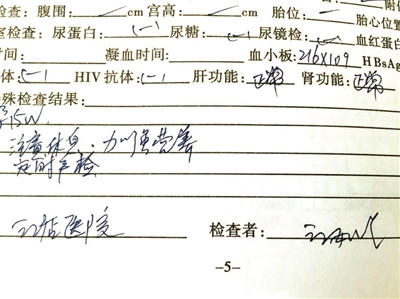 检查：腹围： cm 宫高： cm 胎位：
室检查：尿蛋白：(-) 尿糖：(-) 尿镜检：(-) 血红蛋白
时间： 凝血时间： 血小板：216×109 HBsAg
体：(-) HIV抗体：(-) 肝功能：正常 肾功能：正常
殊检查结果：
15W
注意休息，加强营养
定时产检
医院
检查者：
–5–